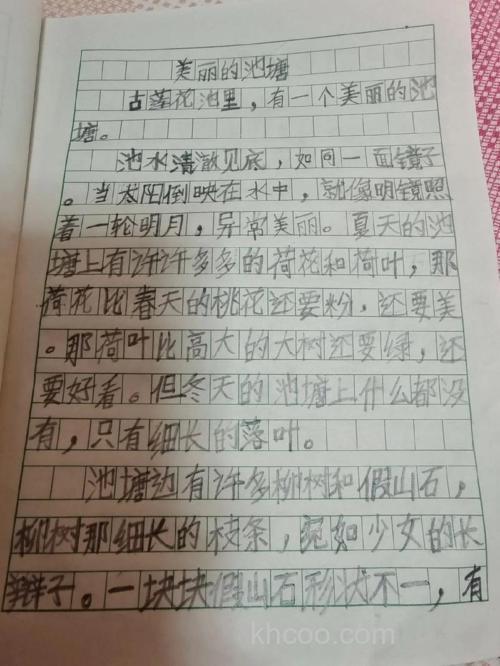 美丽的池塘
古莲花池里，有一个美丽的池
塘。
池水清澈见底，如同一面镜子
。当太阳倒映在水中，就像明镜照
着一轮明月，异常美丽。夏天的池
塘上有许许多多的荷花和荷叶，那
荷花比春天的桃花还要粉，还要美
。那荷叶比高大的大树还要绿，还
要好看。但冬天的池塘上什么都没
有，只有细长的落叶。
池塘边有许多柳树和假山石，
柳树那细长的枝条，宛如少女的长
辫子。一块块假山石形状不一，有
khcoo.com